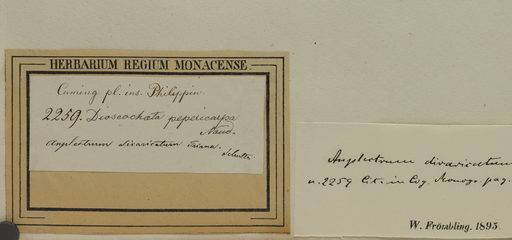 HERBARIUM REGIUM MONACENSE
Cuming pl. ins. Philippin.
2259. Dioscochata pepericarpa
Naud.
Anplectrum divaricatum Triana.
Anplectrum divaricatum
n. 2259 Cit. in Cog. Monogr. pag.
W. Frömbling. 1895.